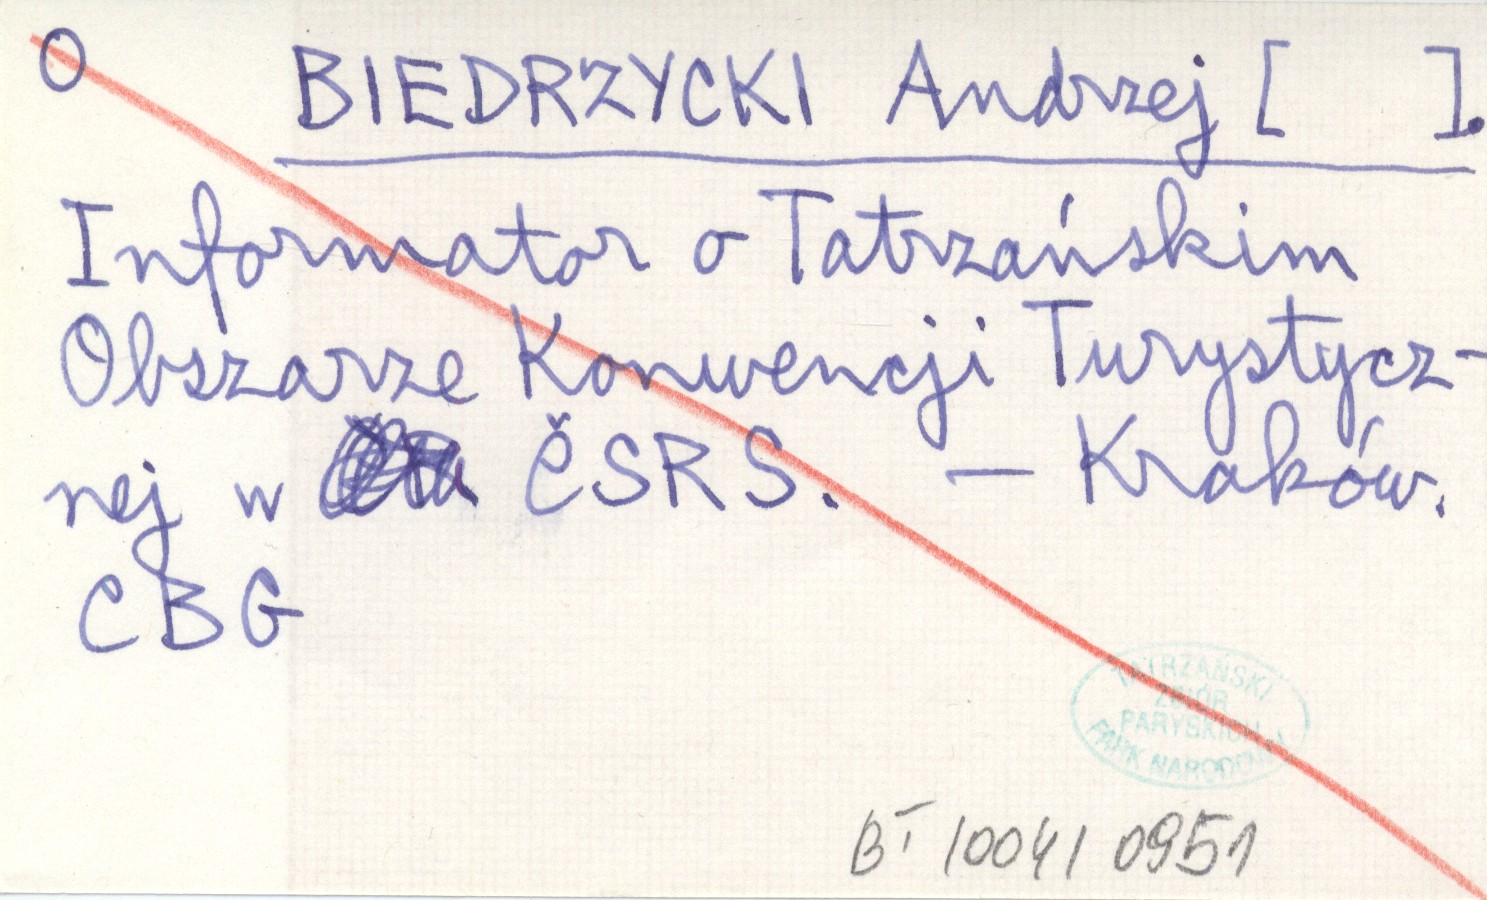 O BIEDRZYCKI Andrzej [ ].
Informator o Tatrzańskim
Obszarze Konwencji Turystycz-
nej w ČSRS. — Kraków.
CBG
TATRZAŃSKI
ZBIÓR
PARYSKICH
PARK NARODOWY
BI 10041 0951